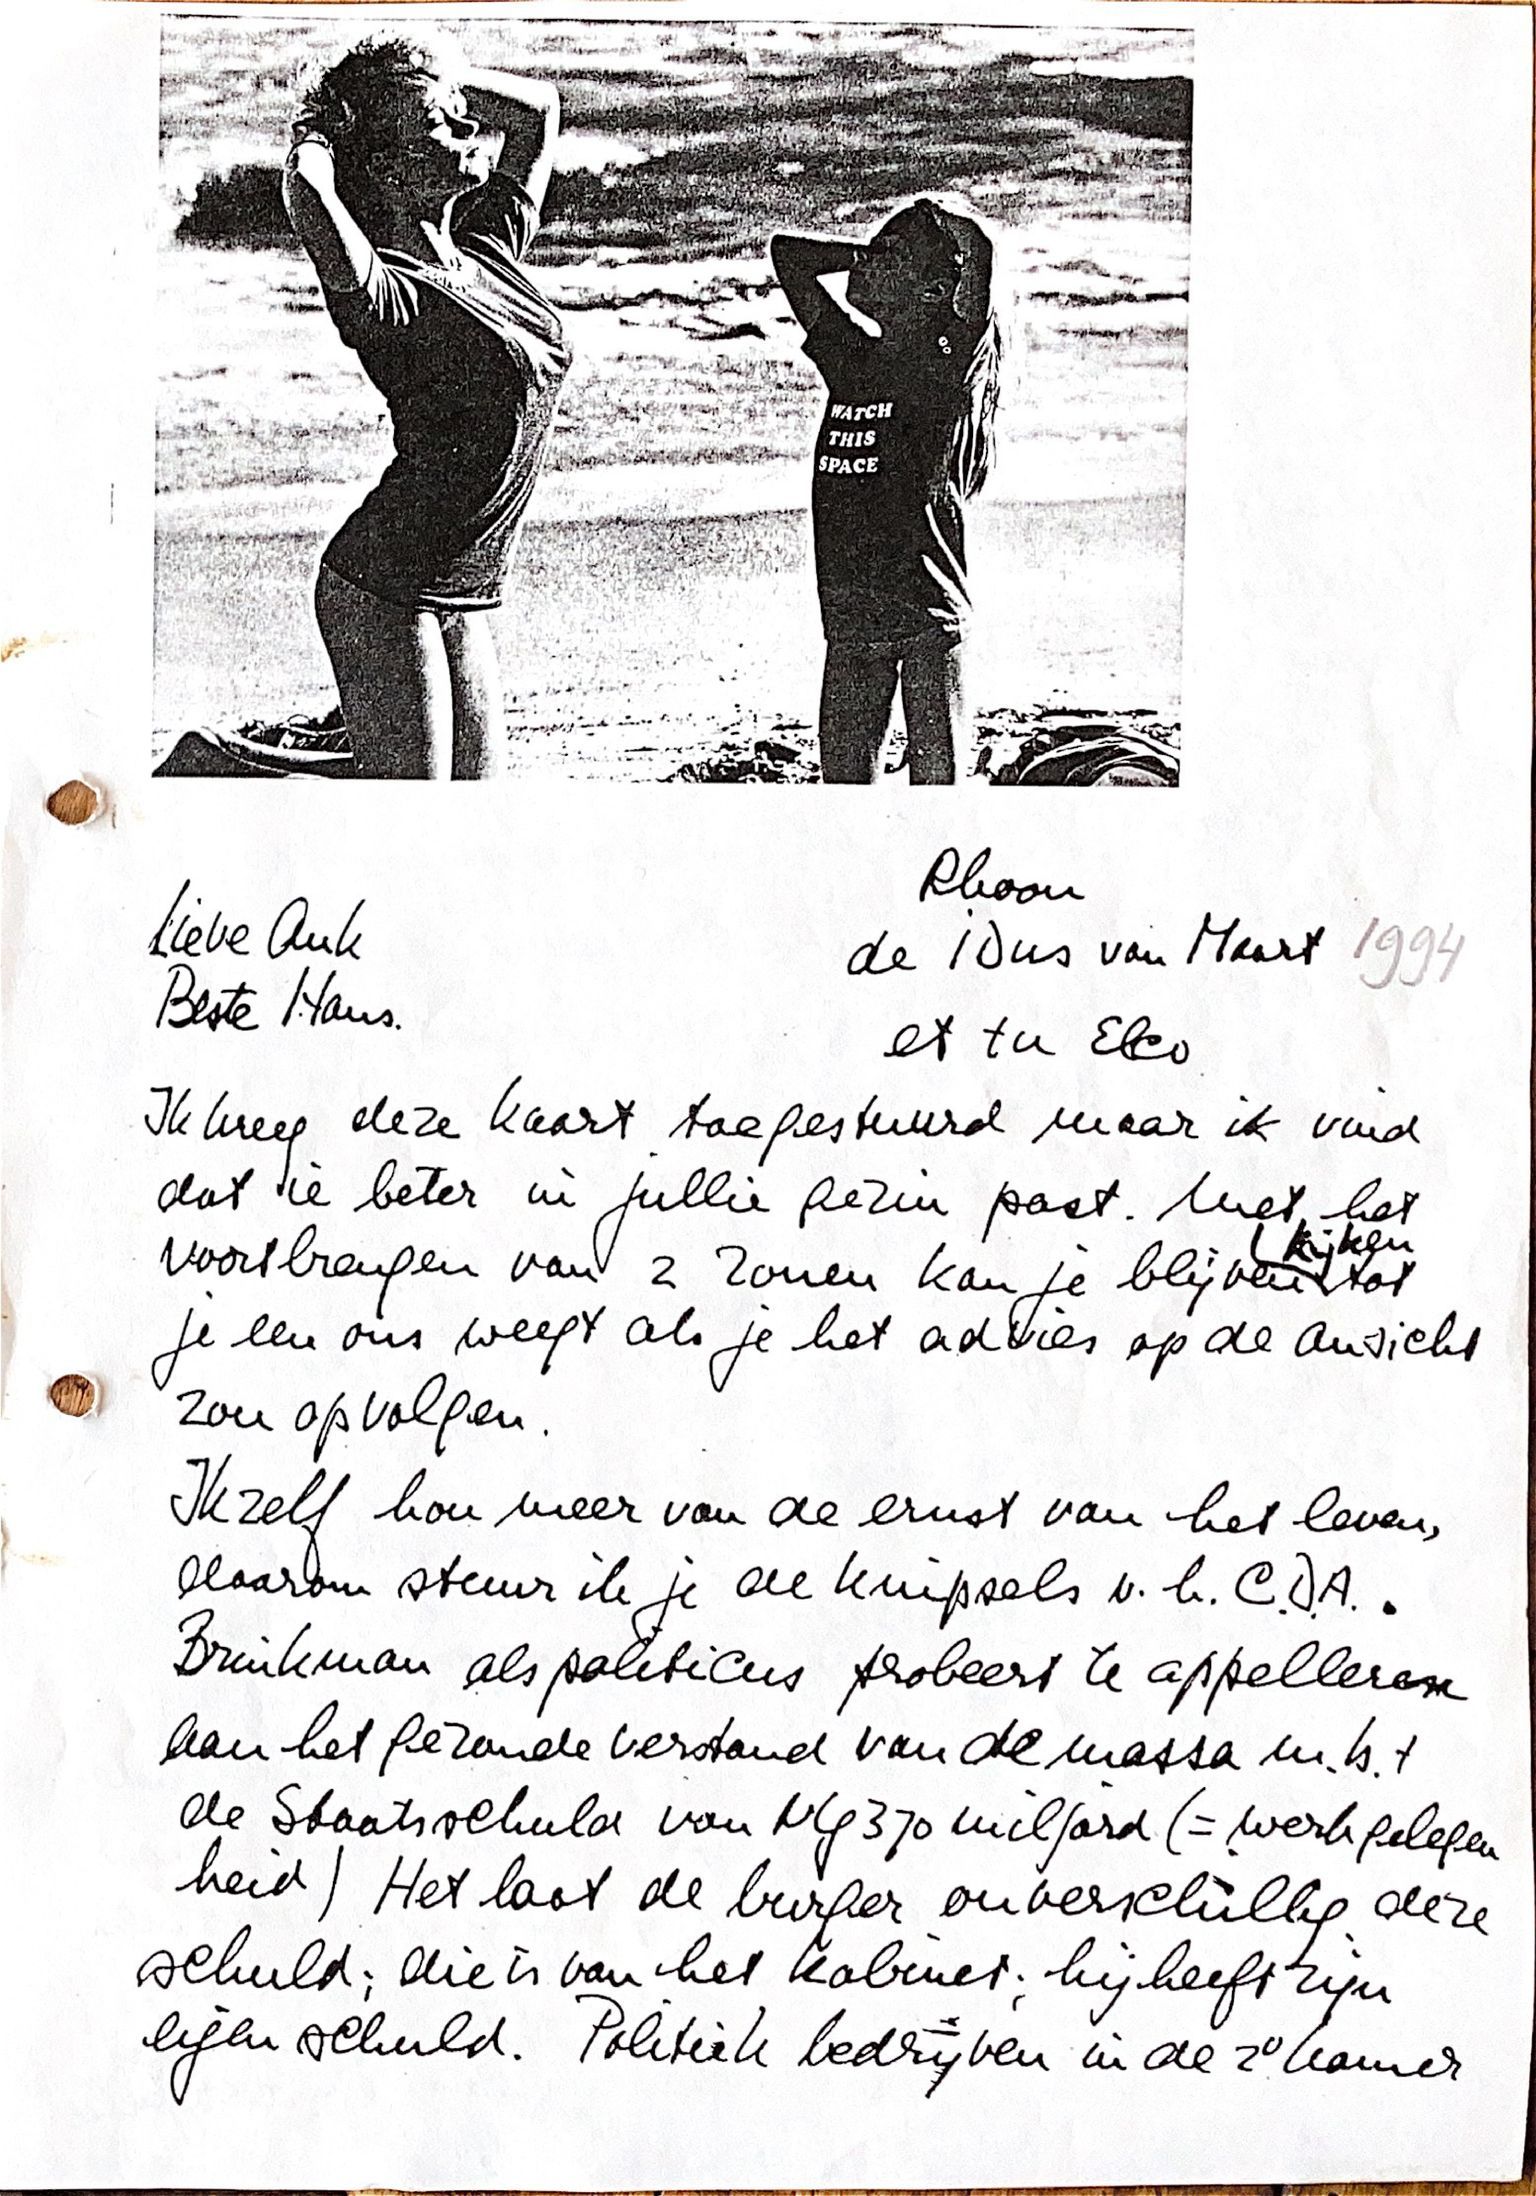 WATCH
THIS
SPACE
Rhoon
de iDus van Maart 1994
et tu Elco
Lieve Ank
Beste Hans.
Ik kreeg deze kaart toegestuurd maar ik vind
dat ie beter in jullie gezin past. Met het
voortbrengen van 2 zonen kan je blijven kijken tot
je een ons weegt als je het advies op de ansicht
zou opvolgen.
Ikzelf hou meer van de ernst van het leven,
daarom stuur ik je de knipsels v.h. C.D.A..
Brinkman als politicus probeert te appelleren
aan het gezonde verstand van de massa m.b.t
de Staatsschuld van Nlg 370 miljard (= werkgelegen
heid) Het laat de burger onverschillig deze
schuld; die is van het kabinet; hij heeft zijn
eigen schuld. Politiek bedrijven in de 2e kamer